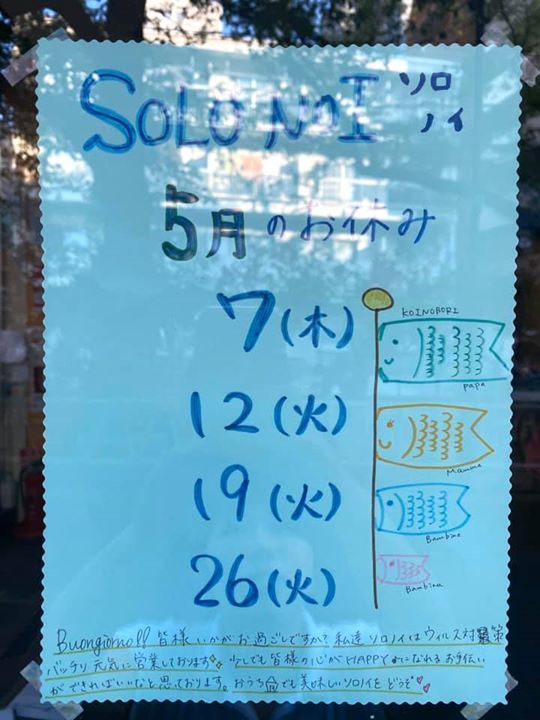 SOLO NOI ソロ
ノイ
5月のお休み
7(木)
KOINOBORI
papa
12(火)
Mamma
19(火)
Bambino
26(火)
Bambina
Buongiorno!! 皆様いかがお過ごしですか? 私達ソロノイはウィルス対策
バッチリ元気に営業しております 少しでも皆様の心がHAPPYになれるお手伝い
ができればいいなと思っております。おうちでも美味しいソロノイをどうぞ